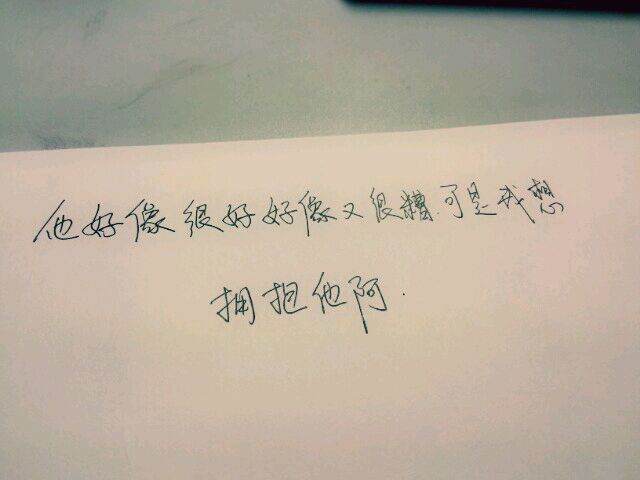 他好像很好好像又很糟.可是我想
拥抱他阿.